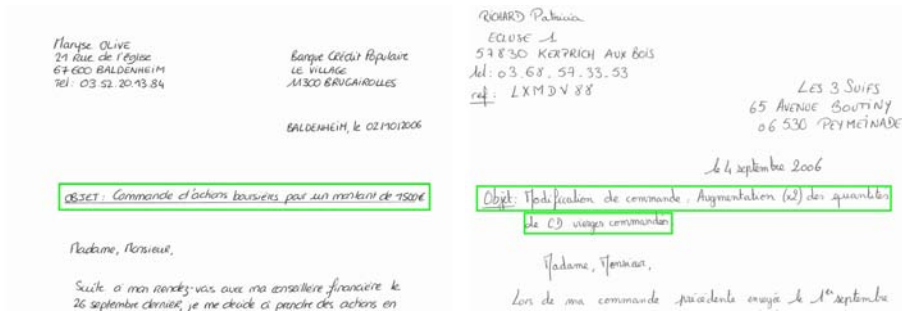 Maryse OLIVE
21 Rue de l'église
67600 BALDENHEIM
Tel : 03.52.20.13.84
Banque Crédit Populaire
LE VILLAGE
11300 BRUGAIROLLES
BALDENHEIM, le 02/10/2006
OBJET : Commande d'actions boursières pour un montant de 7500€
Madame, Monsieur,
Suite à mon rendez-vous avec ma conseillère financière le
26 septembre dernier, je me décide à prendre des actions en
RICHARD Patricia
ECLUSE 1
57830 KERPRICH AUX BOIS
tel : 03.68.57.33.53
ref : LXMDV88
LES 3 SUIFS
65 AVENUE BOUTINY
06530 PEYMEINADE
le 4 septembre 2006
Objet : Modification de commande : Augmentation (x2) des quantités
de CD vierges commandés
Madame, Monsieur,
Lors de ma commande précédente envoyée le 1er septembre